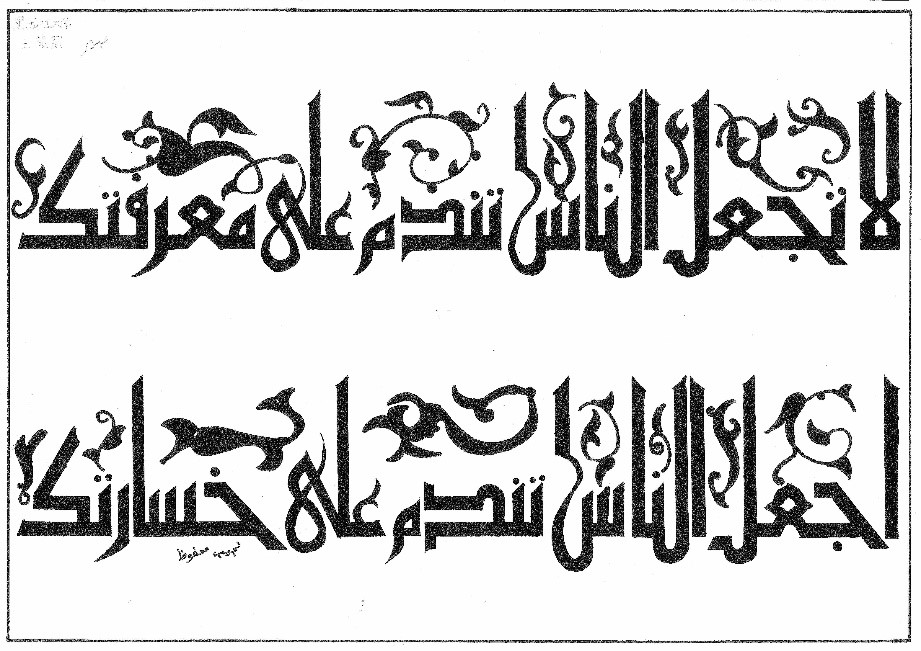 لا تجعل الناس تندم على معرفتك
اجعل الناس تندم على خسارتك